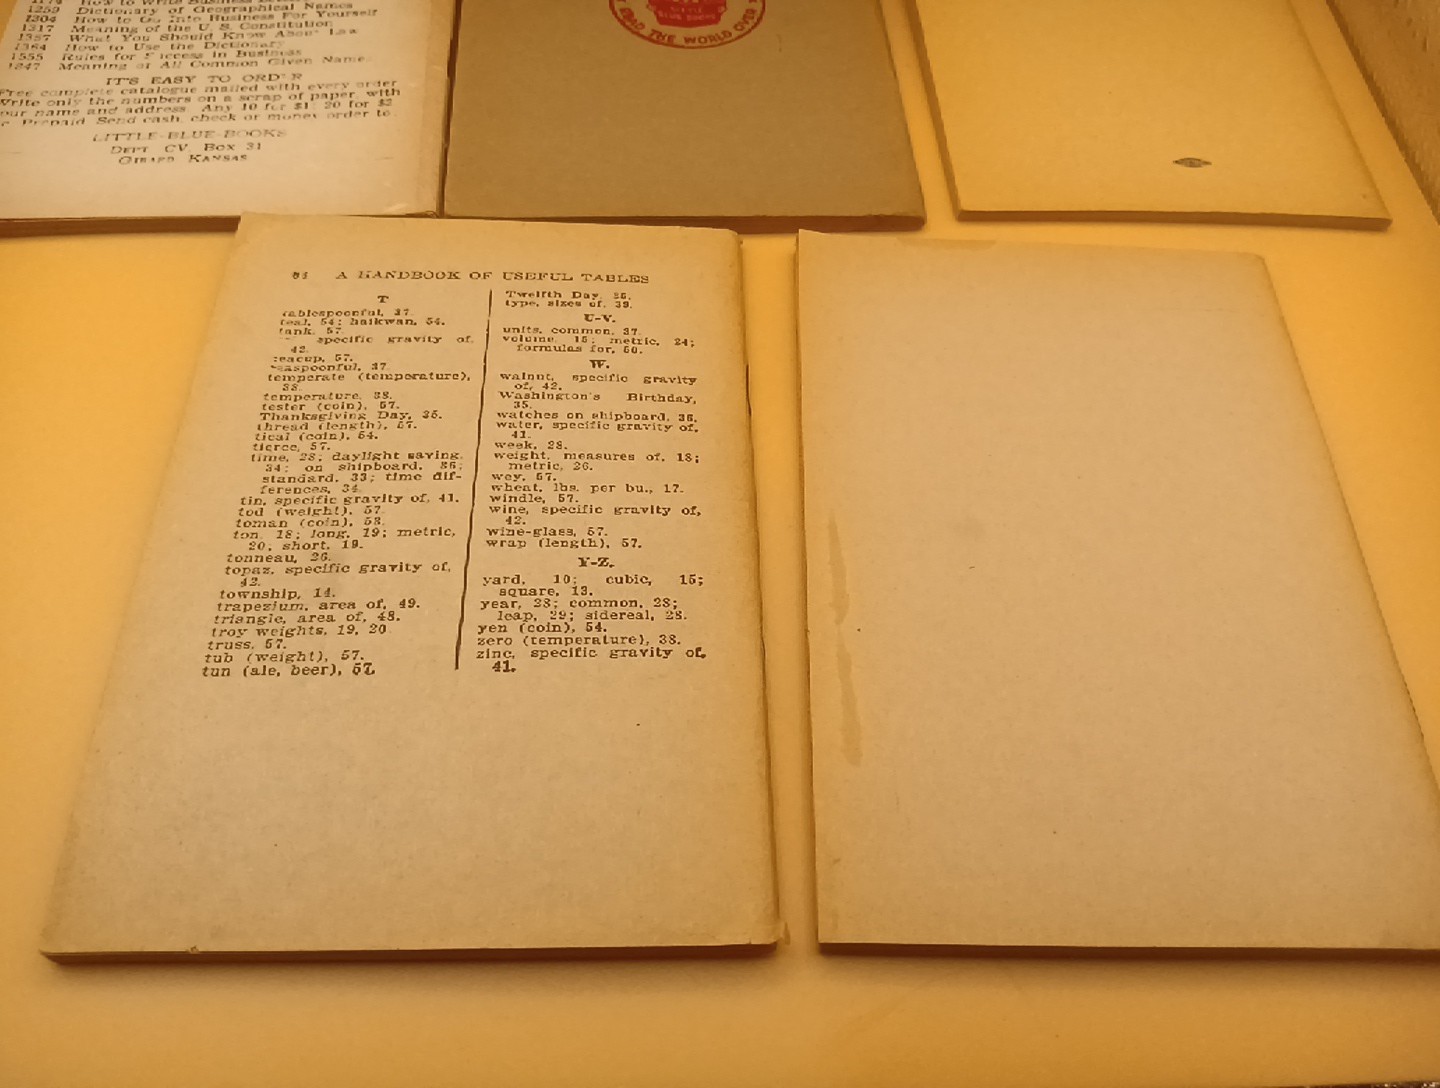 How to Write Business
1259 Dictionary of Geographical Names
1304 How to Go Into Business For Yourself
1317 Meaning of the U. S. Constitution
1357 What You Should Know About Law
1364 How to Use the Dictionary
1555 Rules for Success in Business
1847 Meaning of All Common Given Name
IT'S EASY TO ORDER
Free complete catalogue mailed with every order
Write only the numbers on a scrap of paper, with
our name and address. Any 10 for $1. 20 for $2
Prepaid Send cash, check or money order to
LITTLE-BLUE-BOOKS
DEPT CV, BOX 31
GIRARD KANSAS
READ THE WORLD OVER
A HANDBOOK OF USEFUL TABLES
T
tablespoonful, 37.
teal, 54; haikwan, 54.
tank, 57.
specific gravity of,
42.
teacup, 57.
teaspoonful, 37.
temperate (temperature),
38.
temperature, 38.
tester (coin), 57.
Thanksgiving Day, 35.
thread (length), 57.
tical (coin), 54.
tierce, 57.
time, 28; daylight saving,
34; on shipboard, 36;
standard, 33; time dif-
ferences, 34.
tin, specific gravity of, 41.
tod (weight), 57.
toman (coin), 53.
ton, 18; long, 19; metric,
20; short, 19.
tonneau, 26.
topaz, specific gravity of,
42.
township, 14.
trapezium, area of, 49.
triangle, area of, 48.
troy weights, 19, 20.
truss, 57.
tub (weight), 57.
tun (ale, beer), 57.
Twelfth Day, 36.
type, sizes of, 39.
U-V.
units, common, 37.
volume, 15; metric, 24;
formulas for, 50.
W.
walnut, specific gravity
of, 42.
Washington's Birthday,
35.
watches on shipboard, 36.
water, specific gravity of,
41.
week, 28.
weight, measures of, 18;
metric, 26.
wey, 57.
wheat, lbs. per bu., 17.
windle, 57.
wine, specific gravity of,
42.
wine-glass, 57.
wrap (length), 57.
Y-Z.
yard, 10; cubic, 15;
square, 13.
year, 28; common, 28;
leap, 29; sidereal, 28.
yen (coin), 54.
zero (temperature), 38.
zinc, specific gravity of,
41.